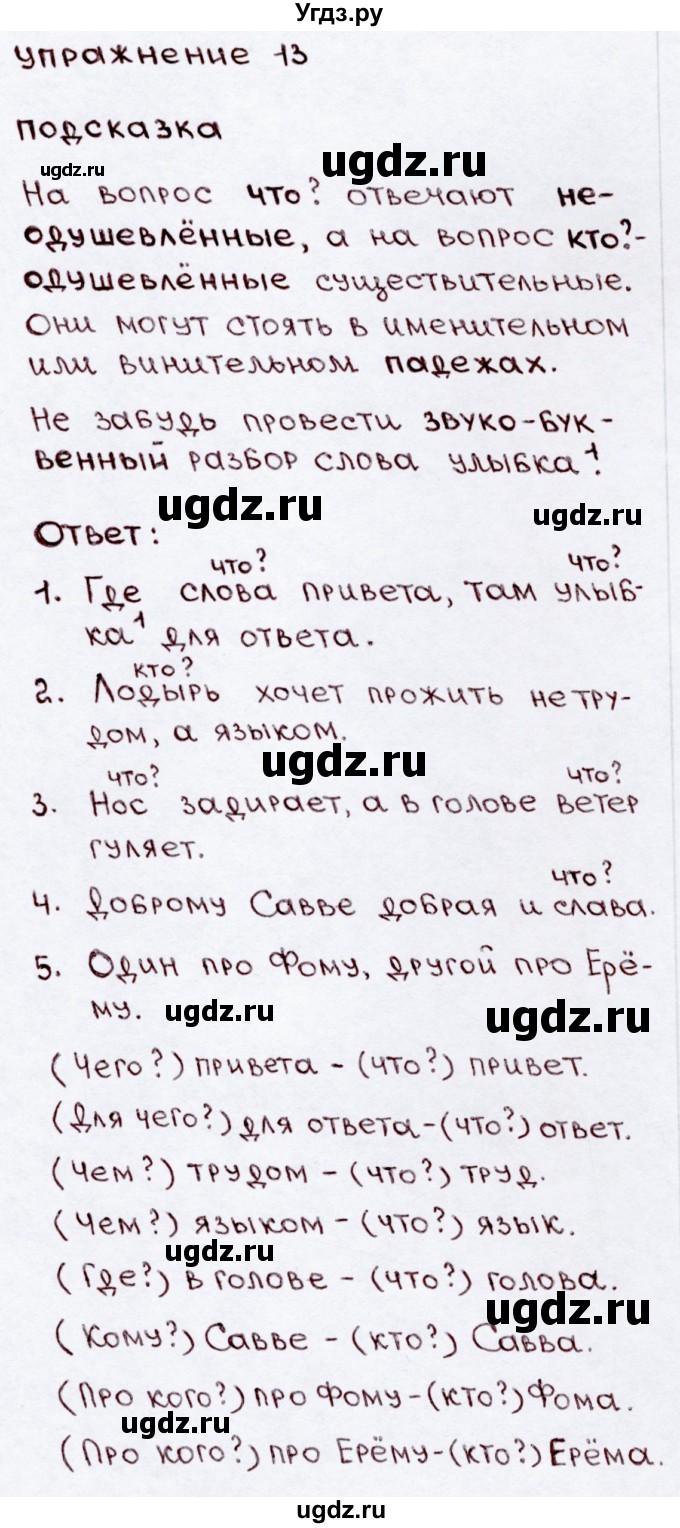 Угдз.ру
упражнение 13
подсказка
ugdz.ru
ugdz.ru
На вопрос что? отвечают не-
одушевлённые, а на вопрос кто?-
одушевлённые существительные.
Они могут стоять в именительном
или винительном падежах.
Не забудь провести звуко-бук-
венный разбор слова улыбка¹!
ugdz.ru
ugdz.ru
Ответ:
что? что?
1. Где слова привета, там улыб-
ка¹ для ответа.
кто?
2. Лодырь хочет прожить не тру-
дом, а языком.
ugdz.ru
что? что?
3. Нос задирает, а в голове ветер
гуляет.
что?
4. Доброму Савве добрая и слава.
5. Один про Фому, другой про Ерё-
му.
ugdz.ru
ugdz.ru
(Чего?) привета - (что?) привет.
(Для чего?) для ответа-(что?) ответ.
(Чем?) трудом - (что?) труд.
(Чем?) языком - (что?) язык.
ugdz.ru
(Где?) в голове - (что?) голова.
ugdz.ru
(Кому?) Савве - (кто?) Савва.
(Про кого?) про Фому-(кто?) Фома.
ugdz.ru
(Про кого?) про Ерёму-(кто?) Ерёма.
ugdz.ru